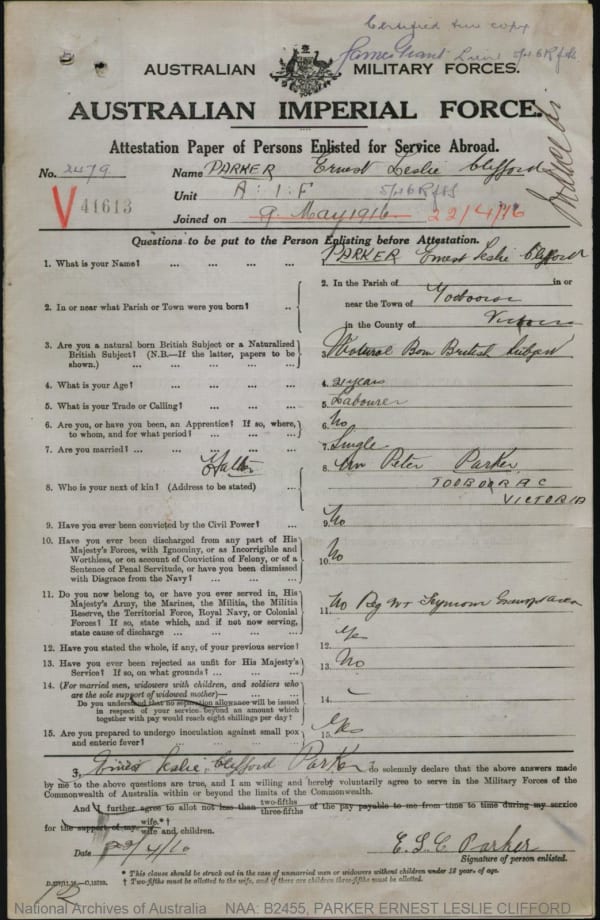 Certified true copy
James Grant Lieut 5/16 Rfts
AUSTRALIAN MILITARY FORCES.
AUSTRALIAN IMPERIAL FORCE.
Attestation Paper of Persons Enlisted for Service Abroad.
No. 2479 Name PARKER Ernest Leslie Clifford
Unit A.I.F 5/16 Rfts
V 41613
Joined on 9 May 1916 22/4/16
Questions to be put to the Person Enlisting before Attestation.
1. What is your Name? ... ... ... ... 1. PARKER Ernest Leslie Clifford
2. In or near what Parish or Town were you born? ..
2. In the Parish of in or
near the Town of
in the County of Victoria
3. Are you a natural born British Subject or a Naturalized
British Subject? (N.B.—If the latter, papers to be
shown.) ... ... ... ...
3. Natural Born British Subject
4. What is your Age? ... ... ... ... 4. 21 years
5. What is your Trade or Calling? ... ... ... 5. Labourer
6. Are you, or have you been, an Apprentice? If so, where,
to whom, and for what period? ... ... ...
6. No
7. Are you married? ... ... ... ... 7. Single
Father
8. Who is your next of kin? (Address to be stated) ...
8. Peter Parker
TOOBORAC
VICTORIA
9. Have you ever been convicted by the Civil Power? ... 9. No
10. Have you ever been discharged from any part of His
Majesty's Forces, with Ignominy, or as Incorrigible and
Worthless, or on account of Conviction of Felony, or of a
Sentence of Penal Servitude, or have you been dismissed
with Disgrace from the Navy? ... ... ...
10. No
11. Do you now belong to, or have you ever served in, His
Majesty's Army, the Marines, the Militia, the Militia
Reserve, the Territorial Force, Royal Navy, or Colonial
Forces? If so, state which, and if not now serving,
state cause of discharge ... ... ... ...
11. No Rej Seymour
12. Have you stated the whole, if any, of your previous service? 12. Yes
13. Have you ever been rejected as unfit for His Majesty's
Service? If so, on what grounds? ... ... ...
13. No
14. (For married men, widowers with children, and soldiers who
are the sole support of widowed mother)— ... ...
Do you understand that no separation allowance will be issued
in respect of your service beyond an amount which
together with pay would reach eight shillings per day?
14. -
15. Are you prepared to undergo inoculation against small pox
and enteric fever? ... ... ... ...
15. Yes
I, Ernest Leslie Clifford Parker do solemnly declare that the above answers made
by me to the above questions are true, and I am willing and hereby voluntarily agree to serve in the Military Forces of the
Commonwealth of Australia within or beyond the limits of the Commonwealth.
And I further agree to allot not less than two-fifths three-fifths of the pay payable to me from time to time during my service
for the support of my wife.*† wife and children.
Date 22/4/16
E. L. C. Parker
Signature of person enlisted.
* This clause should be struck out in the case of unmarried men or widowers without children under 18 years of age.
† Two-fifths must be allotted to the wife, and if there are children three-fifths must be allotted.
National Archives of Australia NAA: B2455, PARKER ERNEST LESLIE CLIFFORD